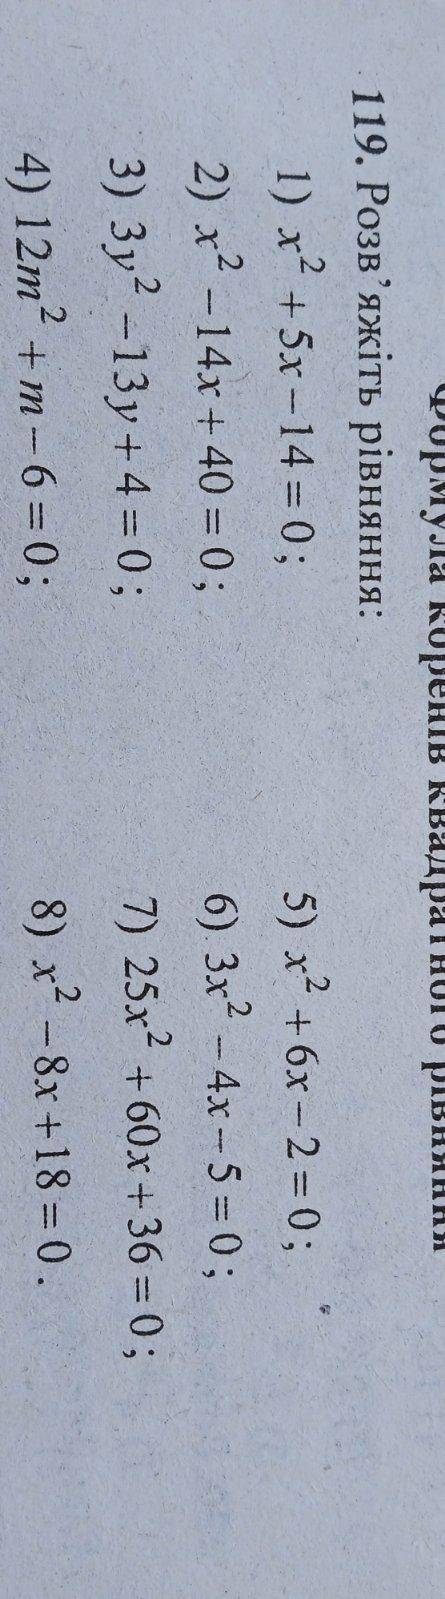 Формула коренів квадратного рівняння
119. Розв’яжіть рівняння:
1) x² + 5x – 14 = 0;
2) x² – 14x + 40 = 0;
3) 3y² – 13y + 4 = 0;
4) 12m² + m – 6 = 0;
5) x² + 6x – 2 = 0;
6) 3x² – 4x – 5 = 0;
7) 25x² + 60x + 36 = 0;
8) x² – 8x + 18 = 0.